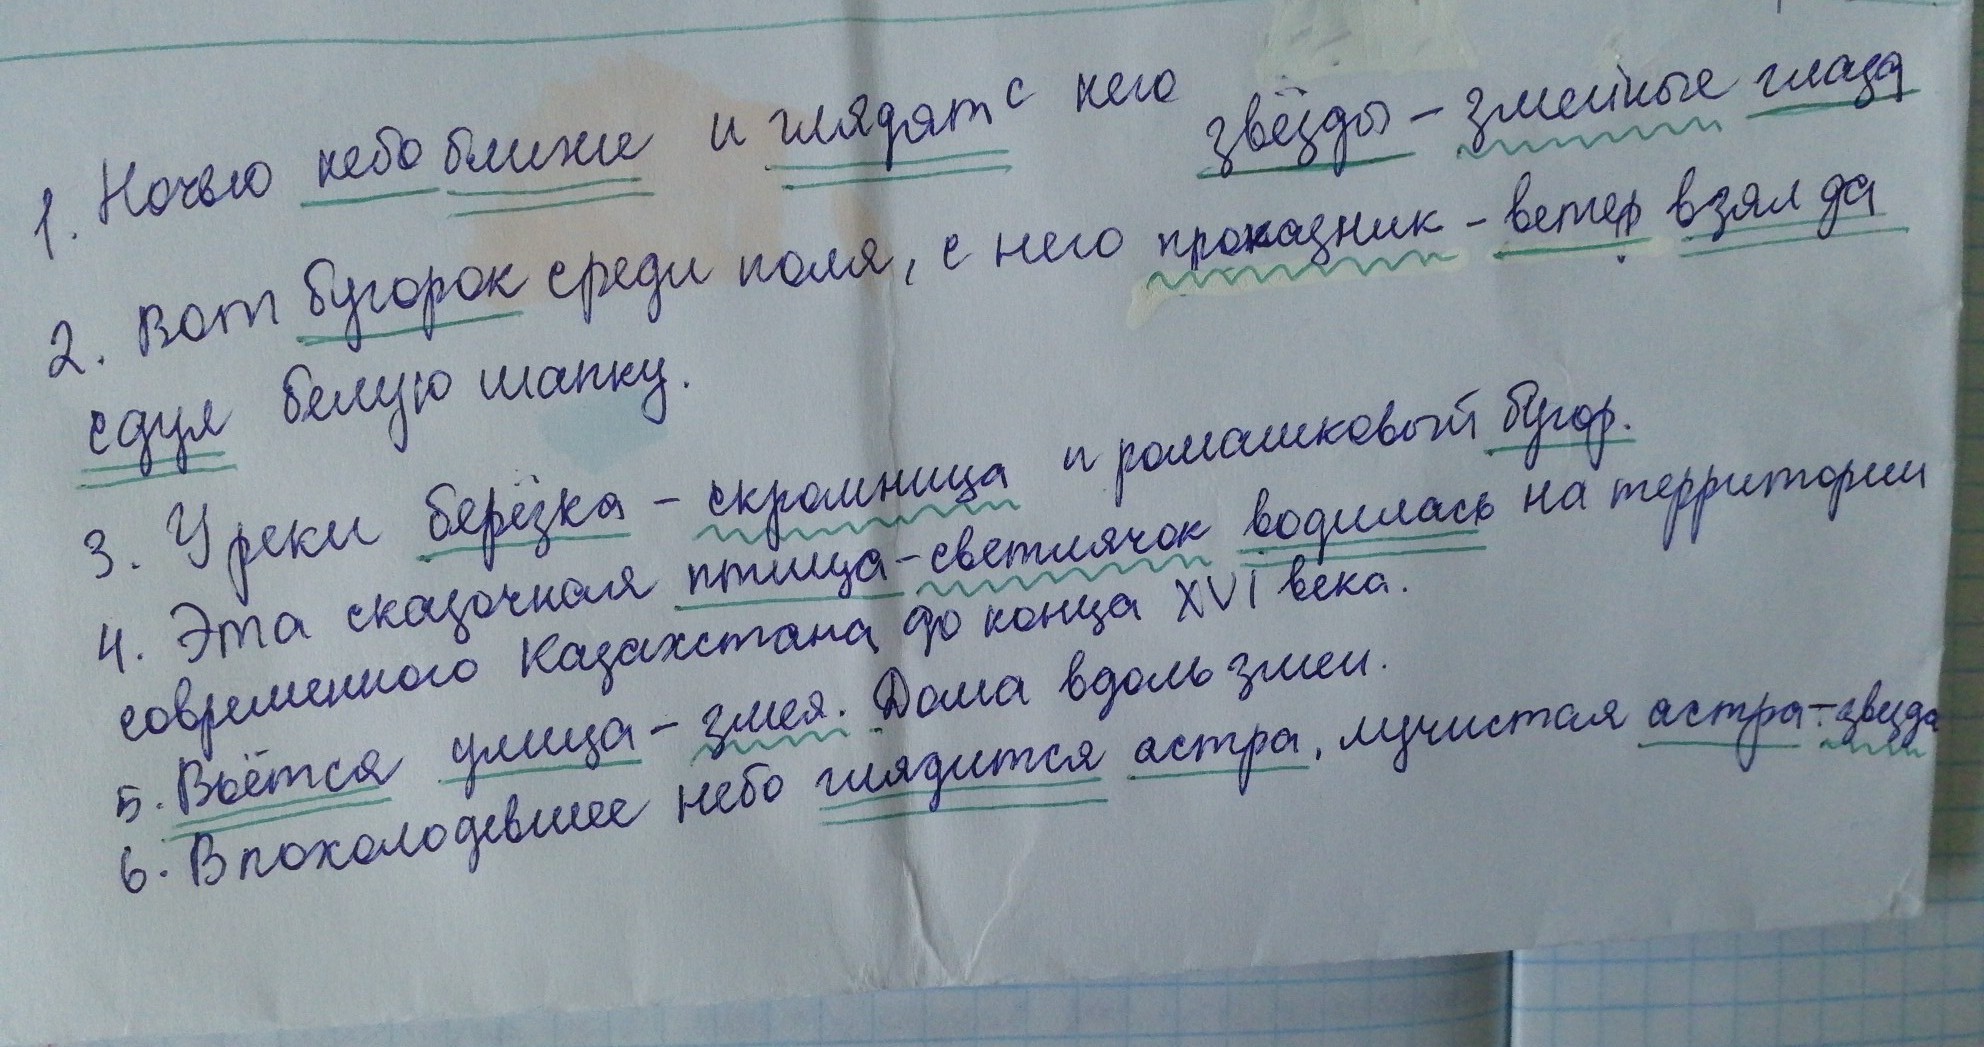 1. Ночью небо ближе и глядят с него звёзды – змеиные глаза
2. Вот бугорок среди поля, с него проказник – ветер взял да
сдул белую шапку.
3. У реки берёзка – скромница и ромашковый бугор.
4. Эта сказочная птица – светлячок водилась на территории
современного Казахстана до конца XVI века.
5. Вьётся улица – змея. Дома вдоль змеи.
6. В похолодевшее небо глядится астра, лучистая астра – звезда